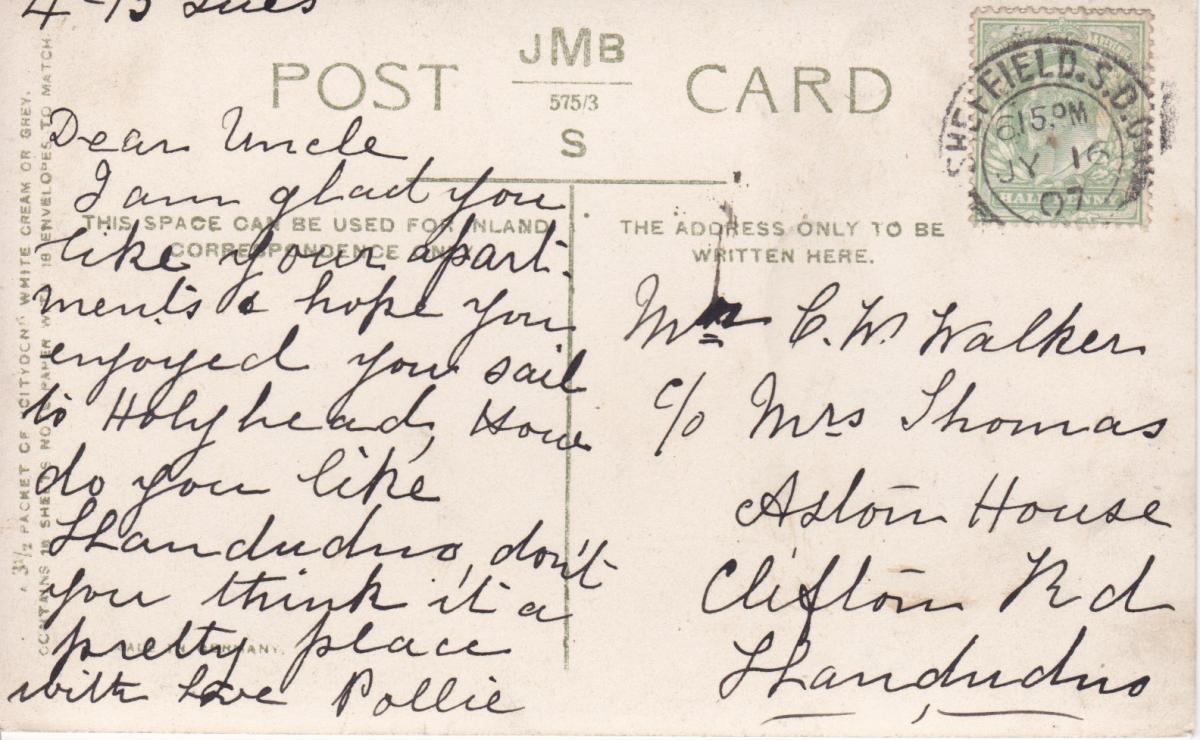 4-15 Tues
POST CARD
JMB
575/3
S
SHEFFIELD.S.D.O
6.15.PM
JY 16
07
HALFPENNY
THIS SPACE CAN BE USED FOR INLAND
CORRESPONDENCE ONLY.
THE ADDRESS ONLY TO BE
WRITTEN HERE.
Dear Uncle
I am glad you
like your apart-
ments & hope you
enjoyed you sail
to Holyhead, How
do you like
Llandudno, don't
you think it a
pretty place
with love Pollie
Mr C. W. Walker
c/o Mrs Thomas
Aston House
Clifton Rd
Llandudno
3½ PACKET OF "CITYDON" WHITE CREAM OR GREY.
CONTAINS 18 SHEETS NOTEPAPER WITH 18 ENVELOPES TO MATCH
GERMANY.